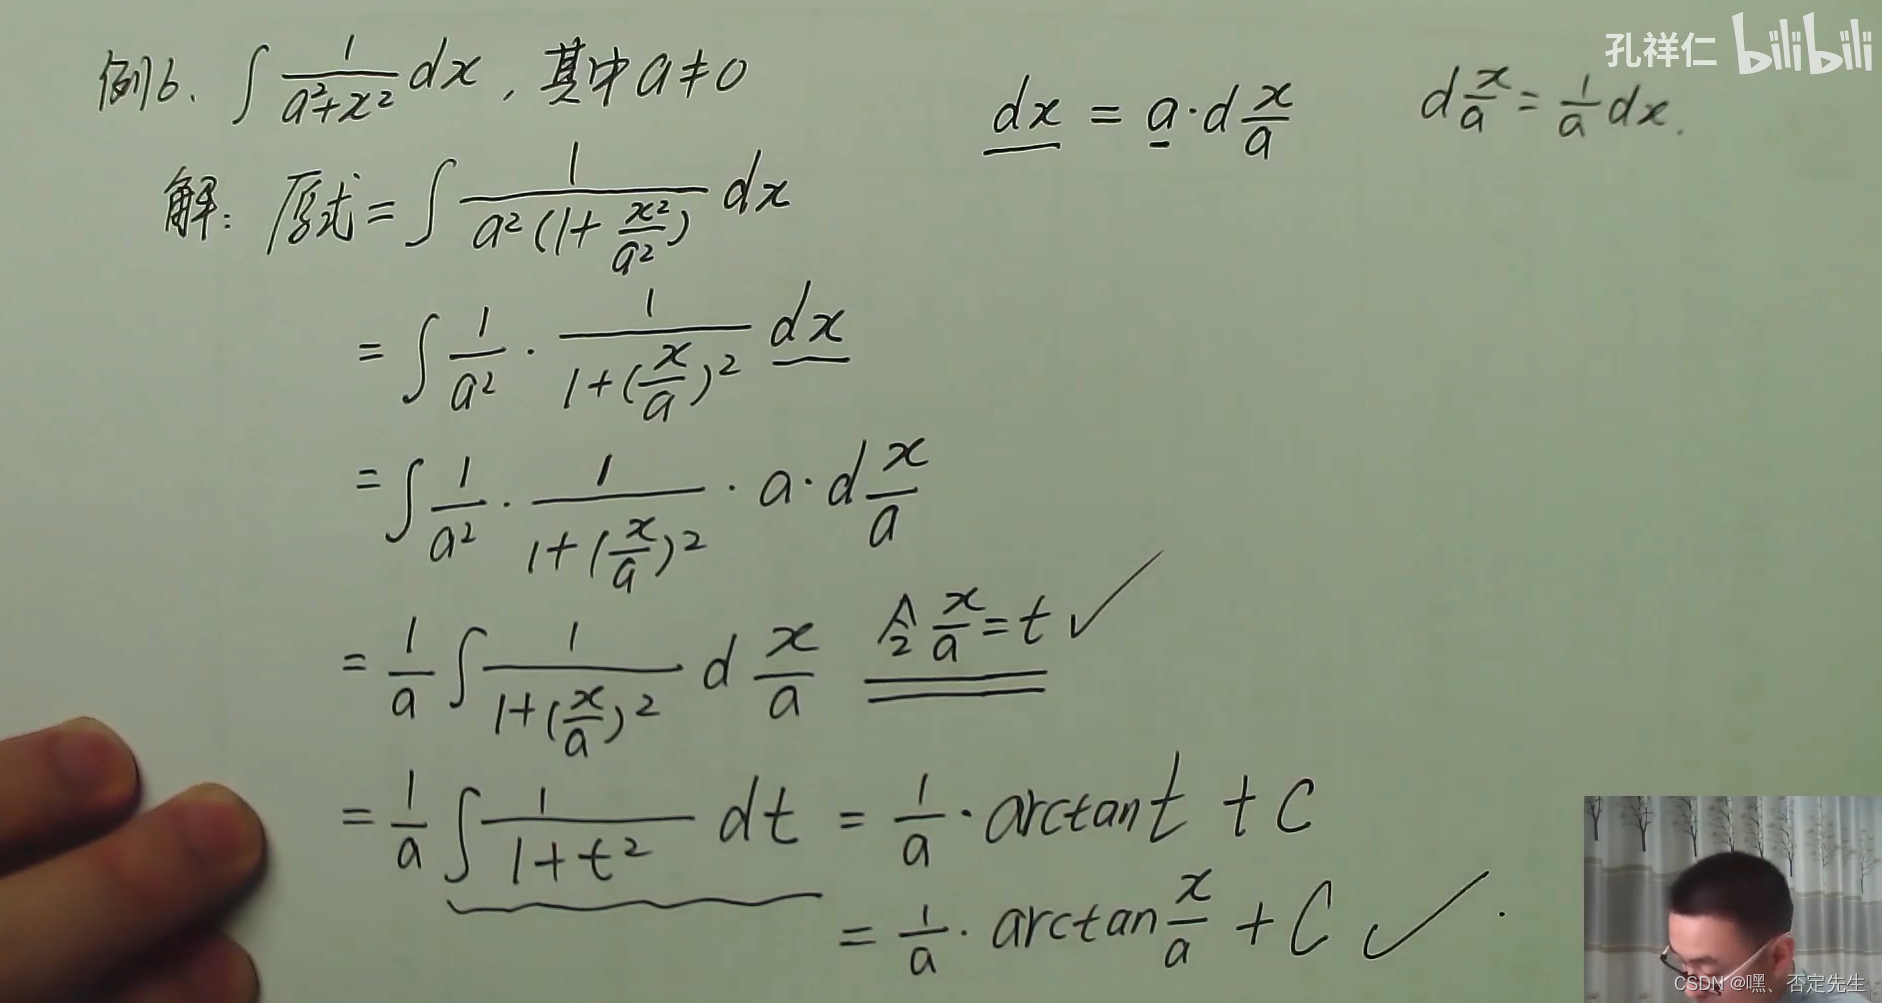 孔祥仁 bilibili
例6、∫ 1/(a²+x²) dx，其中a≠0
dx = a·d x/a
d x/a = 1/a dx.
解：原式 = ∫ 1/(a²(1+x²/a²)) dx
= ∫ 1/a² · 1/(1+(x/a)²) dx
= ∫ 1/a² · 1/(1+(x/a)²) · a·d x/a
= 1/a ∫ 1/(1+(x/a)²) d x/a 令 x/a = t ✓
= 1/a ∫ 1/(1+t²) dt = 1/a · arctan t + C
= 1/a · arctan x/a + C ✓.
CSDN @嘿、否定先生